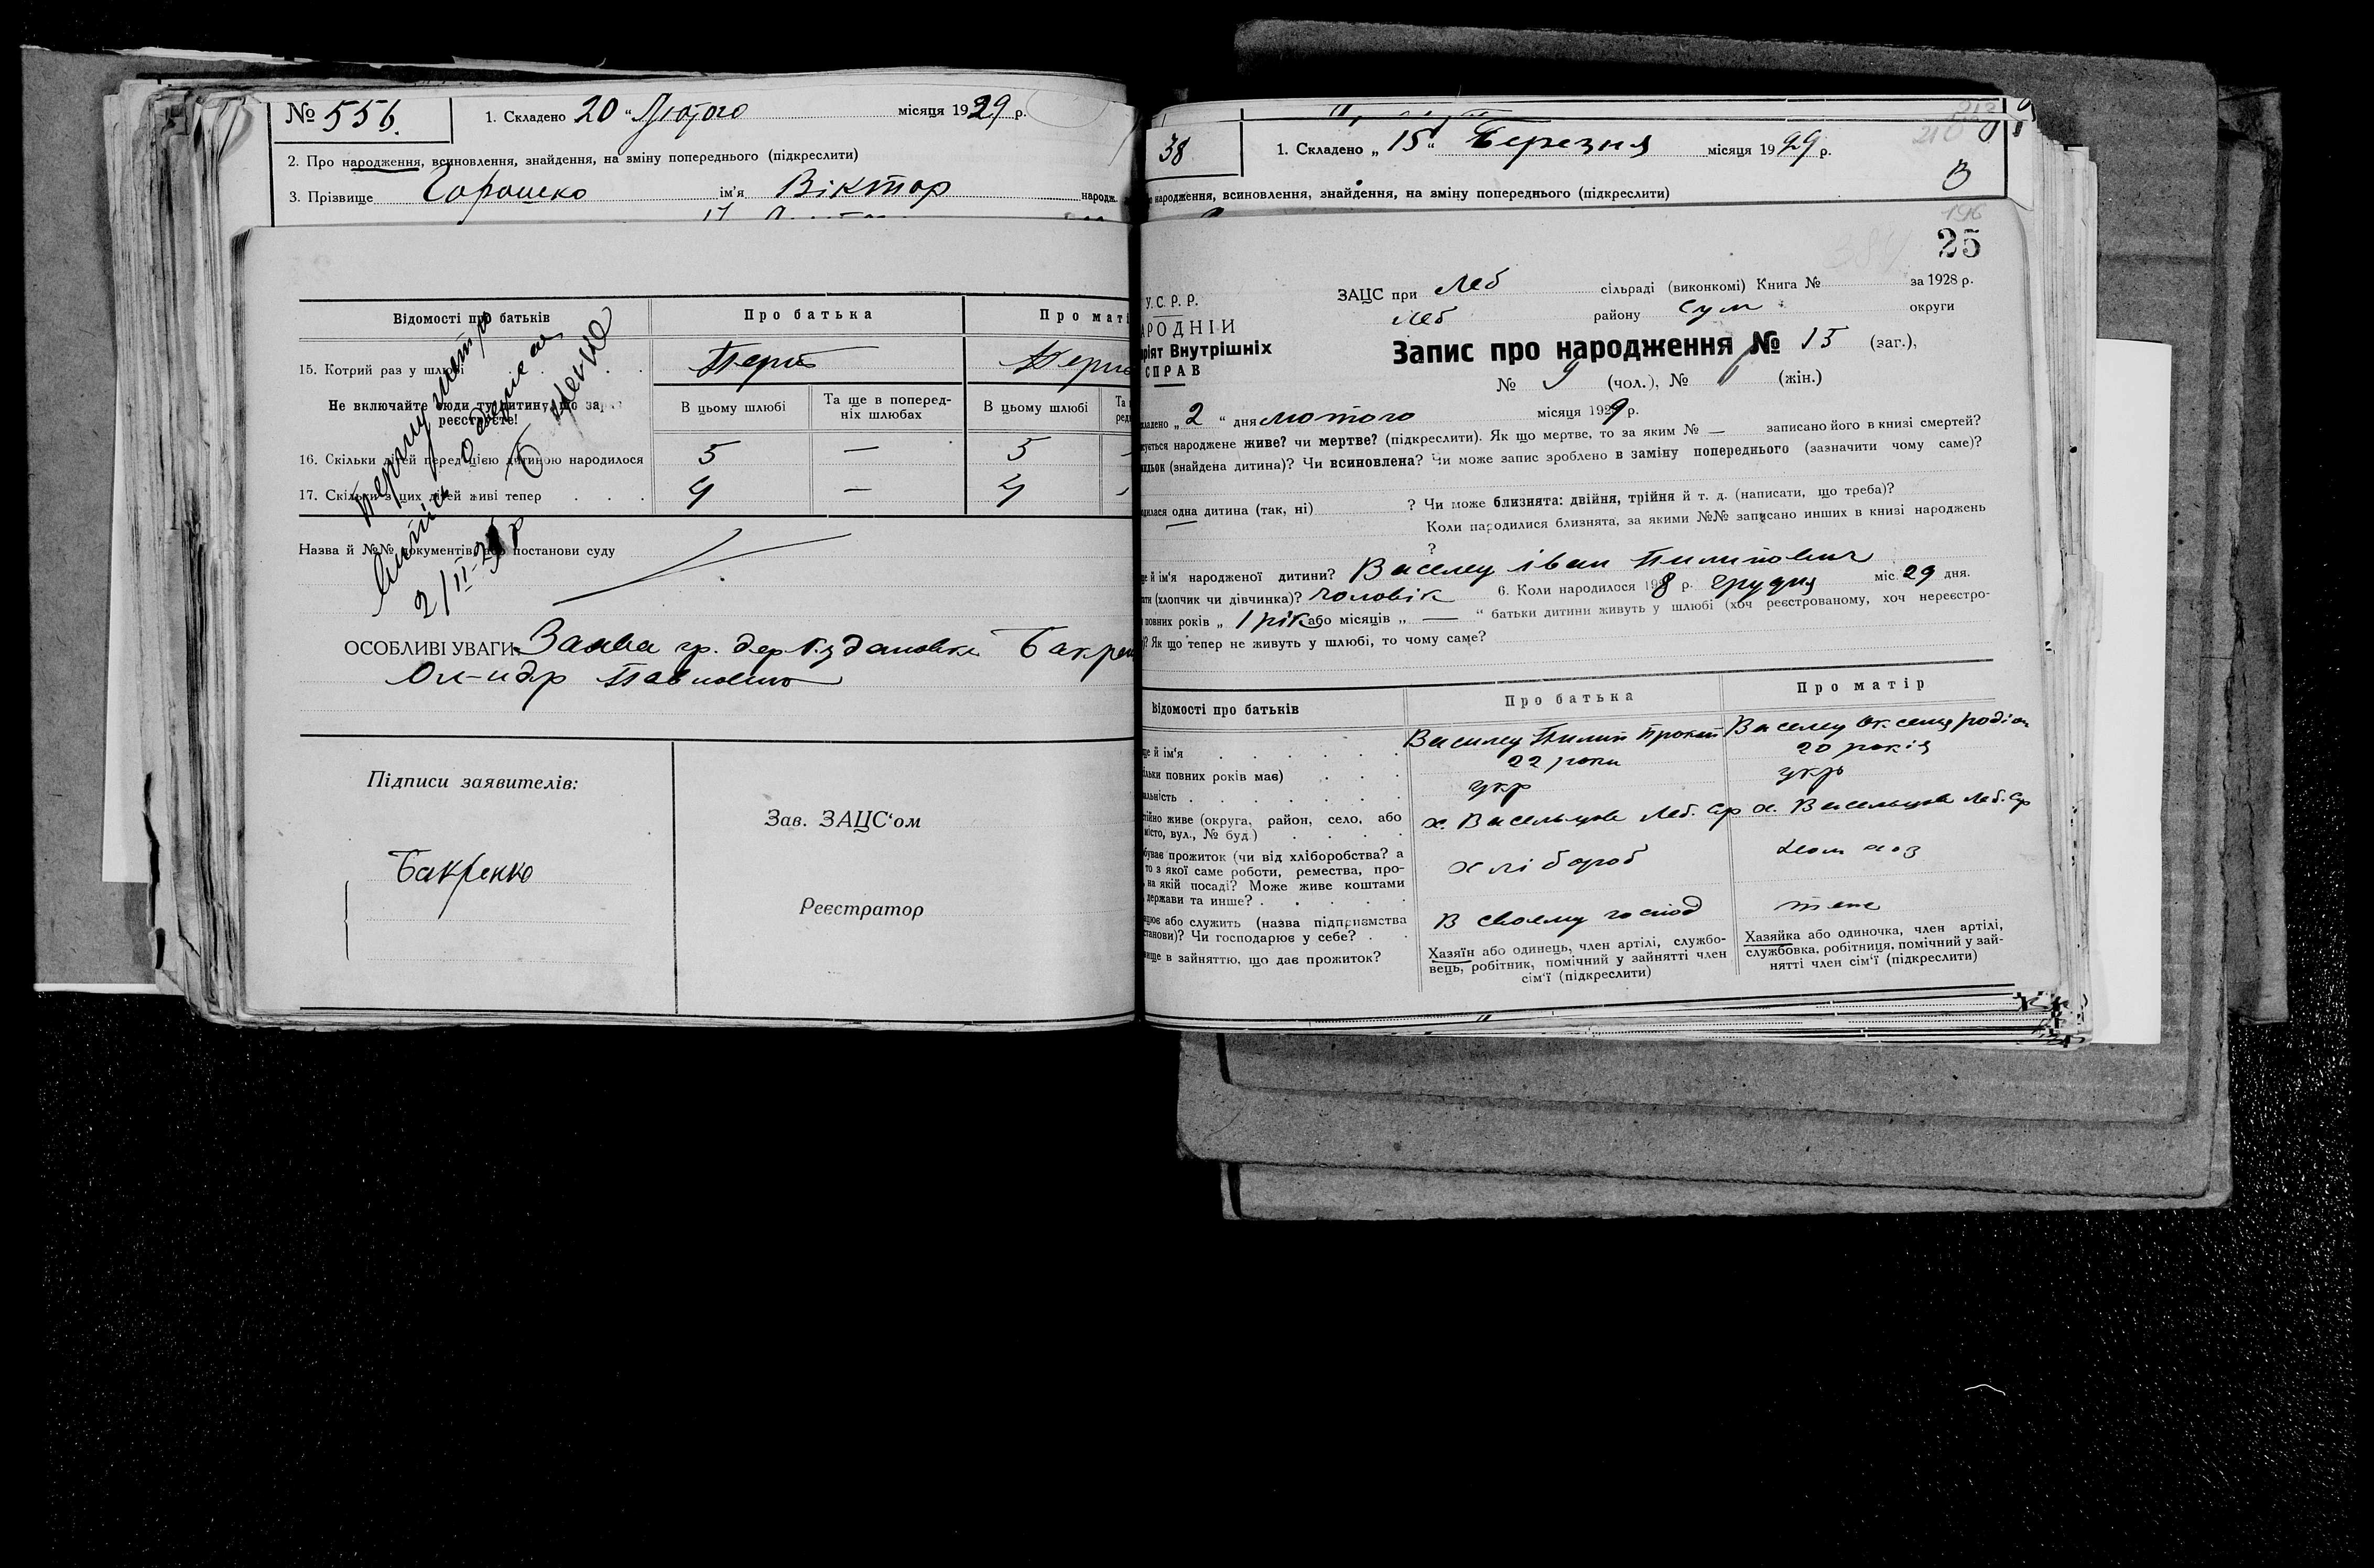 № 556. 1. Складено 20 „Лютого місяця 1929 р.
2. Про народження, всиновлення, знайдення, на зміну попереднього (підкреслити)
3. Прізвище Горошко ім'я Віктор народж.
Відомості про батьків Про батька Про маті
15. Котрий раз у шлюбі
Не включайте сюди ту дитину, що за
реєструєте!
В цьому шлюбі Та ще в поперед-
ніх шлюбах В цьому шлюбі
16. Скільки дітей перед цією дитиною народилося 5 — 5
17. Скільки з цих дітей живі тепер 4 — 4
Назва й №№ документів, або постанови суду
ОСОБЛИВІ УВАГИ Заява гр. дер.
Ол-ндр Павлович
Підписи заявителів:
Зав. ЗАЦС'ом
Бакренко
Реєстратор
38 1. Складено „ 15 “ Березня місяця 1929 р.
народження, всиновлення, знайдення, на зміну попереднього (підкреслити)
В
196
25
У.С.Р.Р. ЗАЦС при Леб сільраді (виконкомі) Книга № за 1928 р.
Леб району Сум округи
РОДНІЙ
ріят Внутрішніх
СПРАВ
Запис про народження № 15 (заг.),
№ 9 (чол.), № 6 (жін.)
ладено „ 2 “ дня лютого місяця 1929 р.
ується народжене живе? чи мертве? (підкреслити). Як що мертве, то за яким № — записано його в книзі смертей?
идьок (знайдена дитина)? Чи всиновлена? Чи може запис зроблено в заміну попереднього (зазначити чому саме)?
дилася одна дитина (так, ні) ? Чи може близнята: двійня, трійня й т. д. (написати, що треба)?
Коли народилися близнята, за якими №№ записано инших в книзі народжень
?
ще й ім'я народженої дитини? Василец Іван Пилипович
(хлопчик чи дівчинка)? Чоловік 6. Коли народилося 1928 р. Грудня міс. 29 дня.
повних років „ 1 рік або місяців „ — “ батьки дитини живуть у шлюбі (хоч реєстрованому, хоч нереєстро-
)? Як що тепер не живуть у шлюбі, то чому саме?
Відомості про батьків Про батька Про матір
ще й ім'я Василец Пилип Прокоп Василец Оксенія Родіон
ільки повних років має) 22 роки 20 років
альність укр укр
тійно живе (округа, район, село, або
місто, вул., № буд.) х. Васельцове Леб. х. Васельцове Леб.
буває прожиток (чи від хліборобства? а
то з якої саме роботи, ремества, про-
, на якій посаді? Може живе коштами
держави та инше? . хлібороб
цює або служить (назва підприємства
станови)? Чи господарює у себе? . В своєму господ теж
ище в зайняттю, що дає прожиток?
Хазяїн або одинець, член артілі, службо-
вець, робітник, помічний у зайнятті член
сім'ї (підкреслити)
Хазяйка або одиночка, член артілі,
службовка, робітниця, помічний у зай-
нятті член сім'ї (підкреслити)